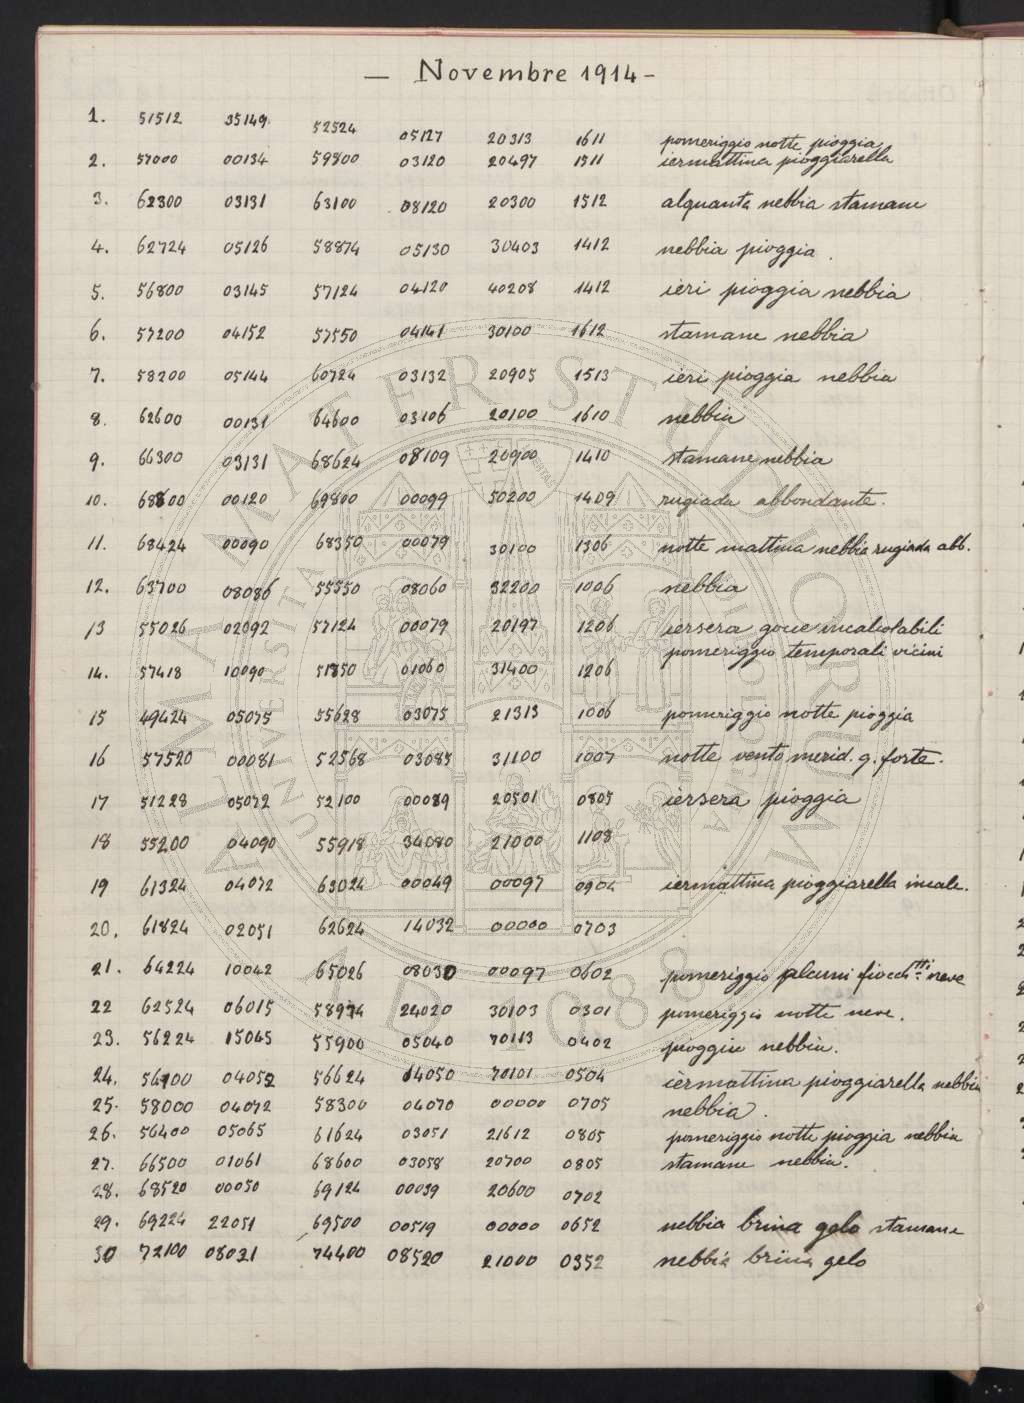 — Novembre 1914 –
1. 51512 35149 52524 05127 20313 1611 pomeriggio notte pioggia
2. 57000 00134 59800 03120 20497 1511 iermattina pioggiarella
3. 62300 03131 63100 08120 20300 1512 alquanta nebbia stamane
4. 62724 05126 58874 05130 30403 1412 nebbia pioggia.
5. 56800 03145 57124 04120 40208 1412 ieri pioggia nebbia
6. 57200 04152 57550 04141 30100 1612 stamane nebbia
7. 58200 05144 60724 03132 20905 1513 ieri pioggia nebbia
8. 62600 00131 64600 03106 20100 1610 nebbia
9. 66300 03131 68624 08109 20900 1410 stamane nebbia
10. 68800 00120 69800 00099 50200 1409 rugiada abbondante.
11. 68424 00090 68350 00079 30100 1306 notte mattina nebbia rugiada abb.
12. 63700 08086 55550 08060 32200 1006 nebbia
13 55026 02092 57124 00079 20197 1206 iersera gocce incalcolabili
pomeriggio temporali vicini
14. 57418 10090 51850 01060 31400 1206
15 49424 05075 55628 03075 21313 1006 pomeriggio notte pioggia
16 57520 00081 52568 03085 31100 1007 notte vento merid. q. forte.
17 51228 05072 52100 00089 20501 0805 iersera pioggia
18 55200 04090 55918 34080 21000 1108
19 61324 04072 63024 00049 00097 0904 iermattina pioggiarella incalc.
20. 61824 02051 62624 14032 00000 0703
21. 64224 10042 65026 08030 00097 0602 pomeriggio alcuni fiocchetti neve
22 62524 06015 58974 24020 30103 0301 pomeriggio notte neve.
23. 56224 15045 55900 05040 70113 0402 pioggia nebbia.
24. 56700 04052 56624 04050 70101 0504 iermattina pioggiarella nebbia
25. 58000 04072 58300 04070 00000 0705 nebbia.
26. 56400 05065 61624 03051 21612 0805 pomeriggio notte pioggia nebbia
27. 66500 01061 68600 03058 20700 0805 stamane nebbia.
28. 68520 00050 69124 00039 20600 0702
29. 69224 22051 69500 00519 00000 0652 nebbia brina gelo stamane
30 72100 08021 74400 08520 21000 0352 nebbia brina gelo
ALMA MATER STUDIORUM
A.D. 1088